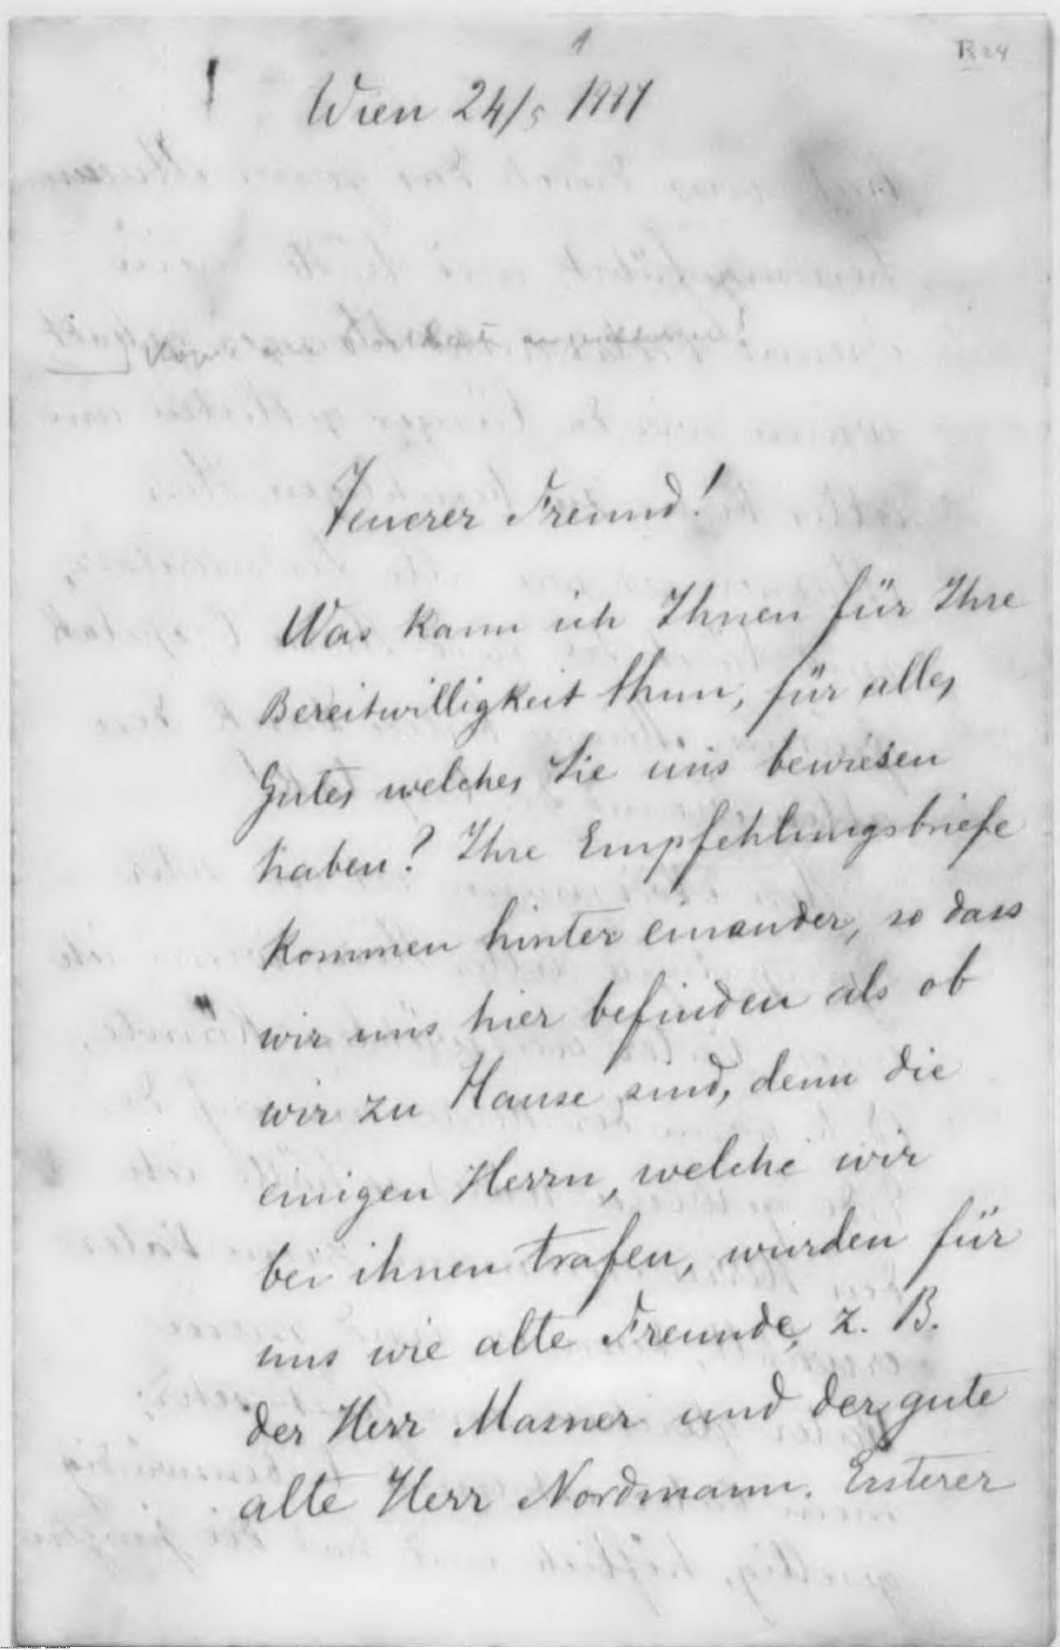 1
R 24
Wien 24/5
Teuerer Freund!
Was kann ich Ihnen für Ihre
Bereitwilligkeit thun, für alles
Gutes welches Sie uns bewiesen
haben? Ihre Empfehlungsbriefe
kommen hinter einander, so dass
wir uns hier befinden als ob
wir zu Hause sind, denn die
einigen Herrn, welche wir
bei ihnen trafen, wurden für
uns wie alte Freunde, z. B.
der Herr Masner und der gute
alte Herr Nordmann. Ersterer